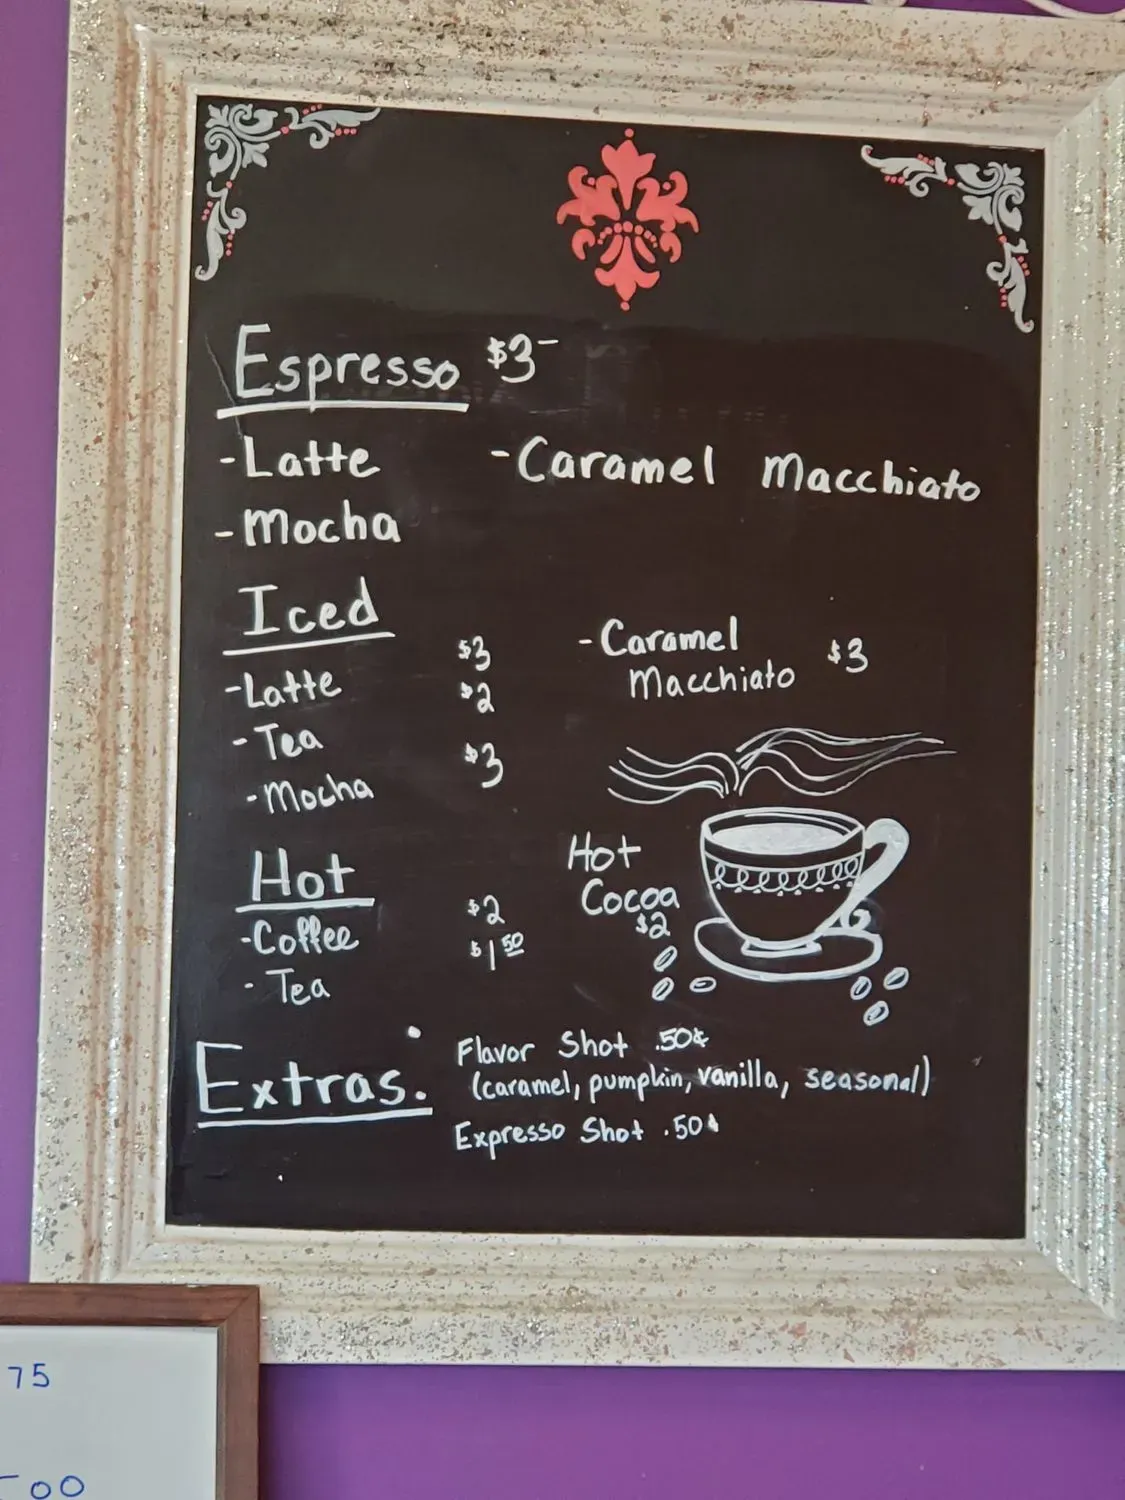 Espresso $3-
-Latte -Caramel Macchiato
-Mocha
Iced
-Latte $3
-Tea $2
-Mocha $3
-Caramel
Macchiato $3
Hot
-Coffee $2
-Tea $1 50
Hot
Cocoa
$2
Extras.
Flavor Shot .50¢
(caramel, pumpkin, vanilla, seasonal)
Expresso Shot .50¢
75
00